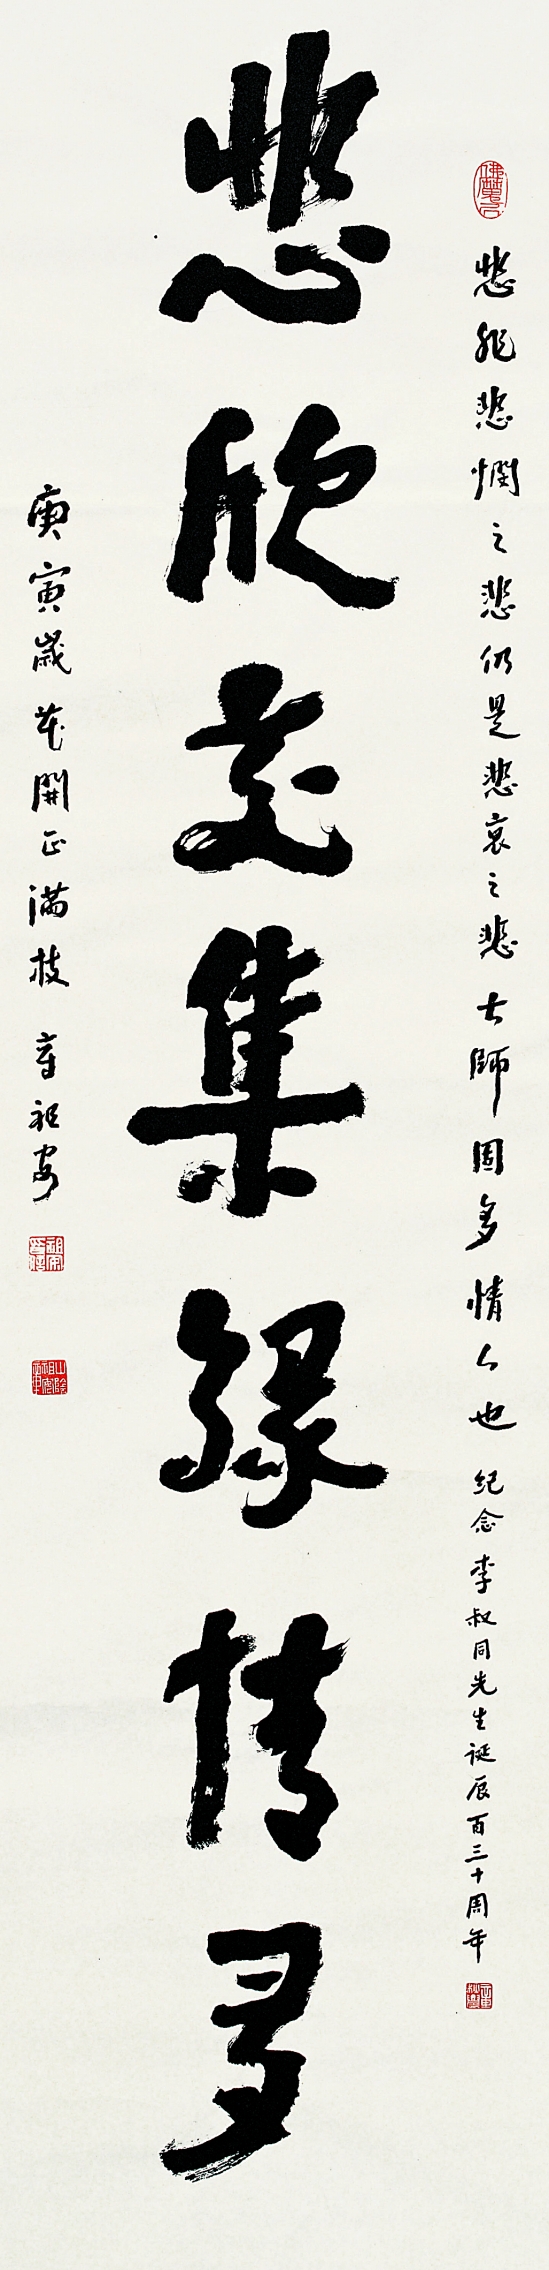 悲非悲憫之悲仍是悲哀之悲大師固多情人也 纪念李叔同先生诞辰百三十周年
悲欣交集緣情多
庚寅歲花開正满枝 章祖安